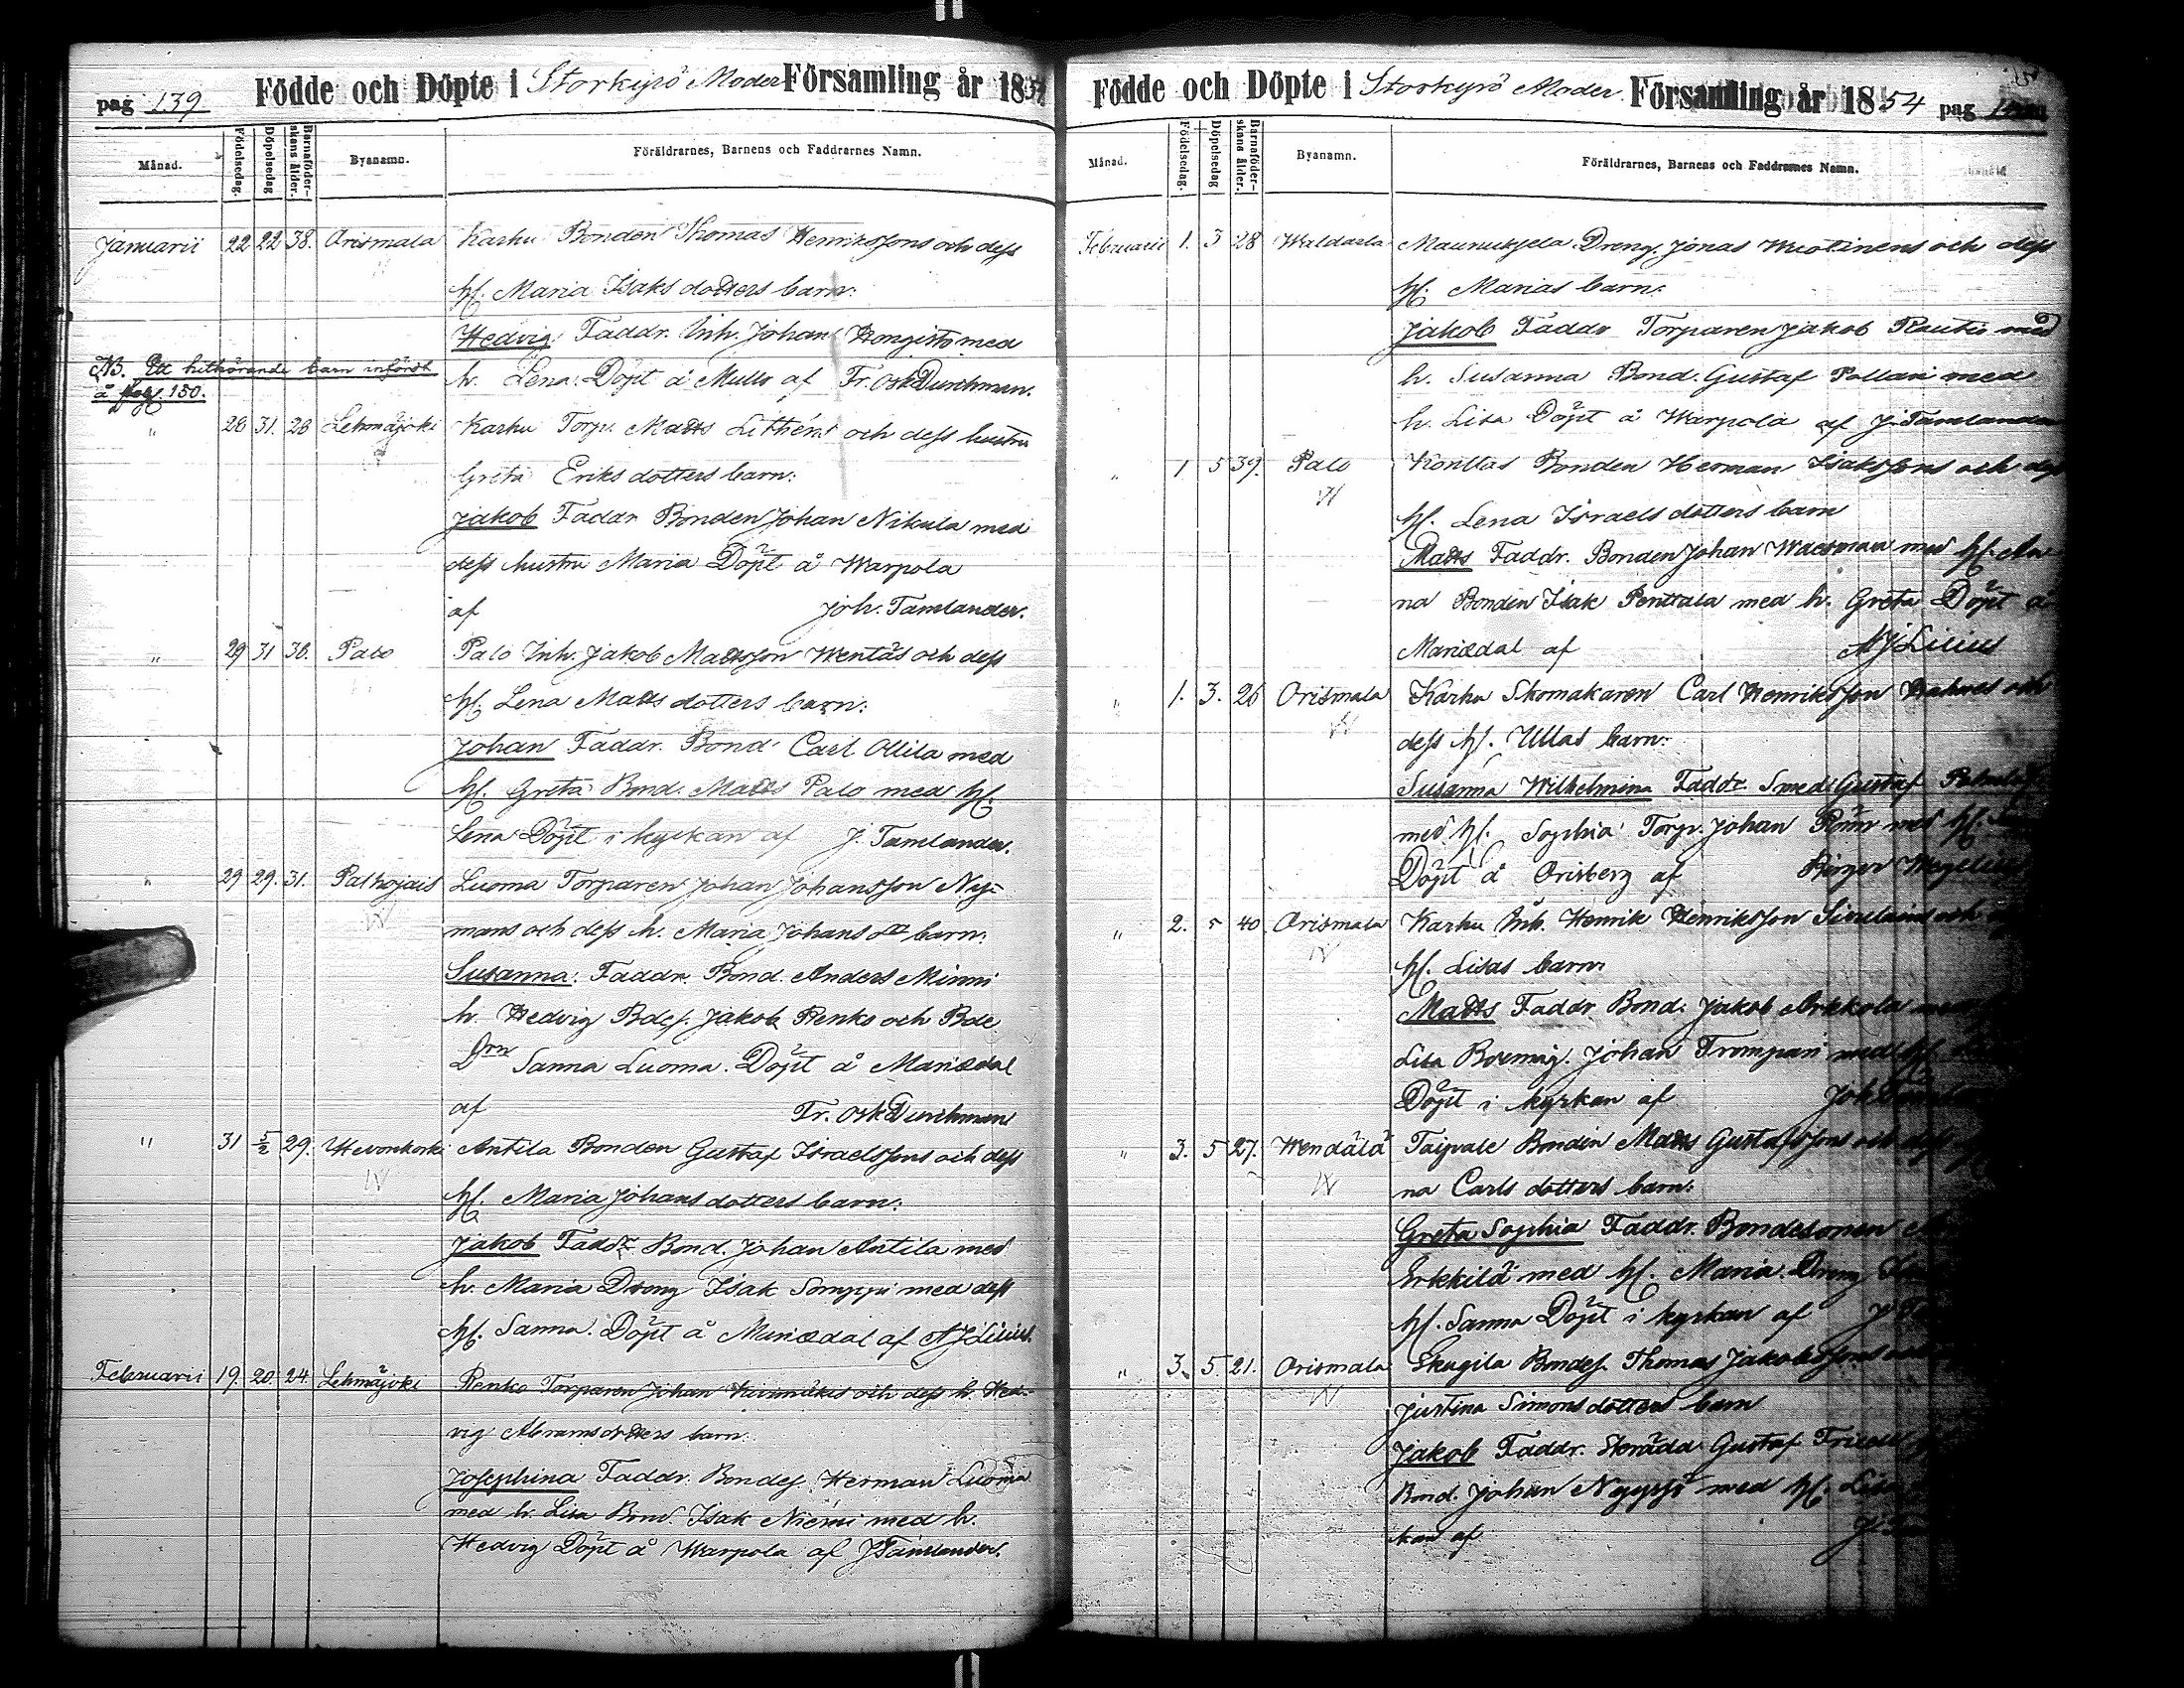 pag 139 Födde och Döpte i Storkyrö Moder Församling år 18
Månad. Födelsedag. Döpelsedag Barnaföder-skans ålder. Byanamn. Föräldrarnes, Barnens och Faddrarnes Namn.
Januarii 22 22 38. Orismala Karhu Bonden Thomas Henrikssons och dess
hf. Maria Isaks dotters barn:
Hedvig Faddr. Inh. Johan Hongisto med
NB. Ett hithörande barn infördt
h. Lena. Döpt å Mullo af Fr. Osk Durchman.
å pag 150.
" 28 31. 28 Lehmäjoki Karhu Torp. Matts Litthéns och dess hustru
Greta Eriks dotters barn:
Jakob Faddr Bonden Johan Nikula med
dess hustru Maria Döpt å Warpola
af Joh. Tamlander.
" 29 31 36. Palo Palo Inh. Jakob Mattsson Wentäs och dess
hf. Lena Matts dotters barn:
Johan Faddr. Bond. Carl Ollila med
hf. Greta Bond. Matts Palo med hf.
Lena Döpt i kyrkan af J. Tamlander.
" 29 29. 31. Palhojais Luoma Torparen Johan Johansson Ny-
mans och dess h. Maria Johans dtr barn:
Susanna. Faddr. Bond. Anders Minni
h. Hedvig Bdes. Jakob Renko och Bde
Drn Sanna Luoma. Döpt å Mariedal
af Fr. Osk Durchman
" 31 5/2 29. Hevonkoski Antila Bonden Gustaf Israelssons och dess
hf. Maria Johans dotters barn:
Jakob Faddr Bond. Johan Antila med
h. Maria Dreng Isak Somppi med dess
hf. Sanna. Döpt å Mariedal af A J Lilius.
Februarii 19. 20. 24. Lehmäjoki Renko Torparen Johan och dess h. Hed-
vig Abrams dotters barn:
Josephina Faddr. Bondes. Herman Luoma
med h. Lisa Bond. Isak Niemi med h.
Hedvig Döpt å Warpola af J Tamlander.
Födde och Döpte i Storkyrö Moder Församling år 1854 pag
Månad. Födelsedag. Döpelsedag Barnaföder-skans ålder. Byanamn. Föräldrarnes, Barnens och Faddrarnes Namn.
Februarii 1. 3 28 Waldarla Maunuksela Dreng. Jonas Wuotinens och dess
hf. Marias barn:
Jakob Faddr Torparen Jakob Rautio med
h. Susanna Bond. Gustaf Pollari med
h. Lisa Döpt å Warpola af J. Tamlander
" 1 5 39. Palo Konttas Bonden Herman Isakssons och dess
hf. Lena Israels dotters barn
Matts Faddr. Bonden Johan Waesman med hf. An
na Bonden Isak Penttala med h. Greta Döpt å
Mariedal af A J Lilius
" 1. 3. 26 Orismala Karhu Skomakaren Carl Henriksson och
dess hf. Ullas barn:
Susanna Wilhelmina Faddr. Smed Gustaf
med hf. Sophia Torp. Johan med hf.
Döpt å Orisberg af Birger Wegelius
" 2. 5 40 Orismala Karhu Inh. Henrik Henriksson och
hf. Lisas barn:
Matts Faddr Bond. Jakob Arkkola
Lisa Johan Trompari med hf.
Döpt i kyrkan af Joh
" 3. 5 27. Wendälä Taipale Bonden Matts Gustafssons och dess
na Carls dotters barn:
Greta Sophia Faddr. Bondesonen
Erkkilä med hf. Maria. Dreng
hf. Sanna Döpt i kyrkan af J
" 3. 5. 21. Orismala Skugila Bondes. Thomas Jakobssons
Justina Simons dotters barn
Jakob Faddr. Skrädd Gustaf
Bond. Johan Nyyssi med hf. Lisa
kan af